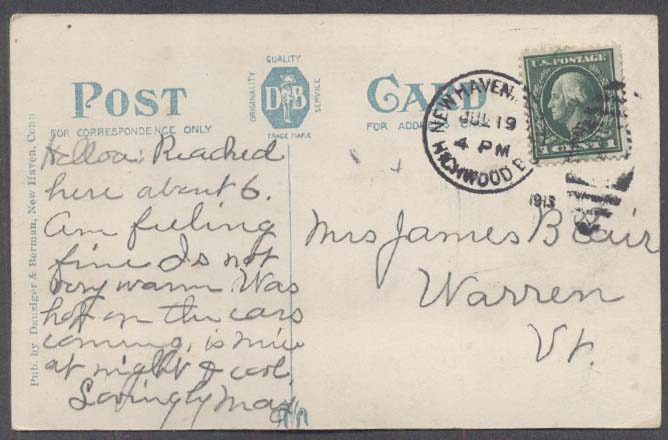 POST CARD
QUALITY
ORIGINALITY
SERVICE
D B
TRADE MARK
FOR CORRESPONDENCE ONLY
FOR ADDRESS ONLY
Helloa: Reached
here about 6.
Am feeling
fine Is not
very warm Was
hot on the cars
coming, is nice
at night & cool.
Lovingly May
NEW HAVEN,
JUL 19
4 PM
HIGHWOOD
1913
U.S. POSTAGE
1 CENT 1
Mrs James Blair
Warren
Vt.
Pub. by Danziger & Berman, New Haven, Conn